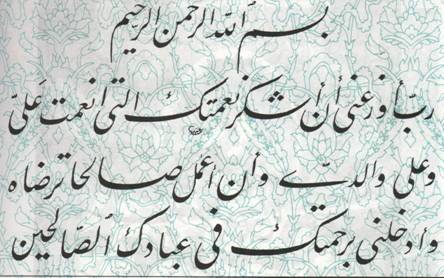 بسم الله الرحمن الرحيم
ربّ أوزعنى أن أشكر نعمتك التى أنعمت علىّ
وعلى والدىّ وأن اعمل صالحا ترضاه
وادخلنى برحمتك فى عبادك الصّالحين